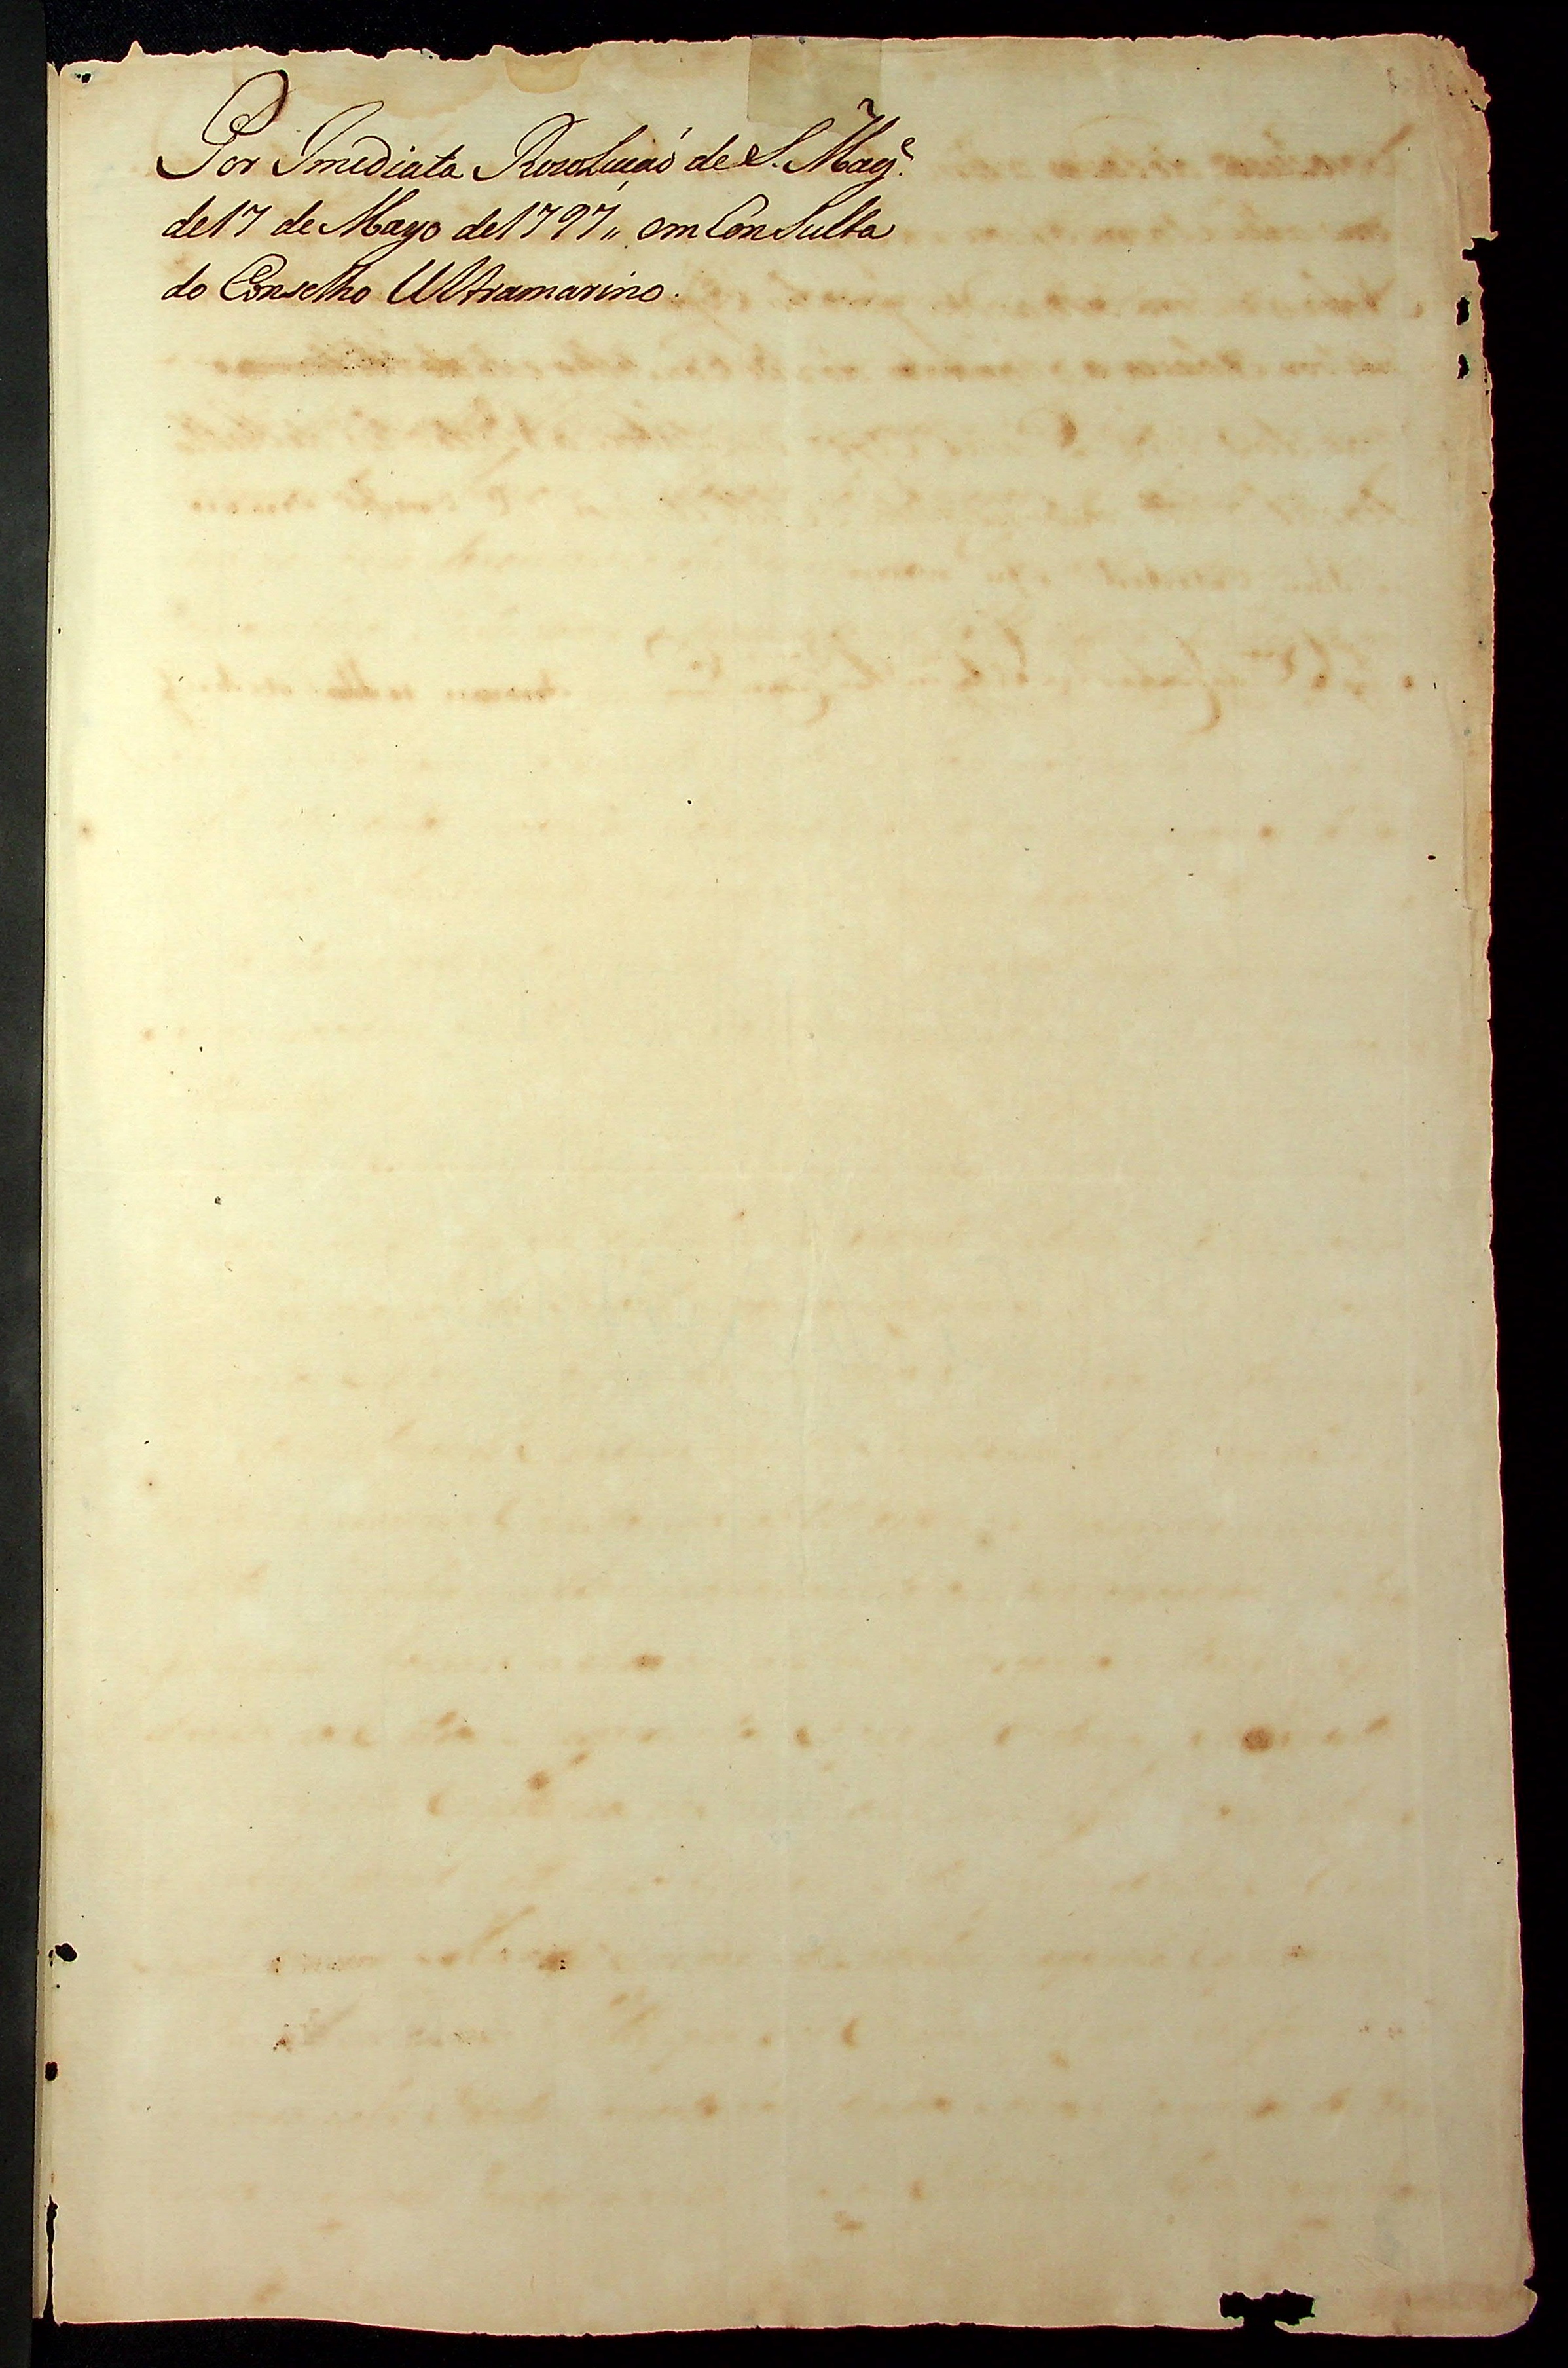 Por Imediata Rezoluçaõ de S. Magᵉ.
de 17 de Mayo de 1797,, em ConSulta
do Conselho Ultramarino.